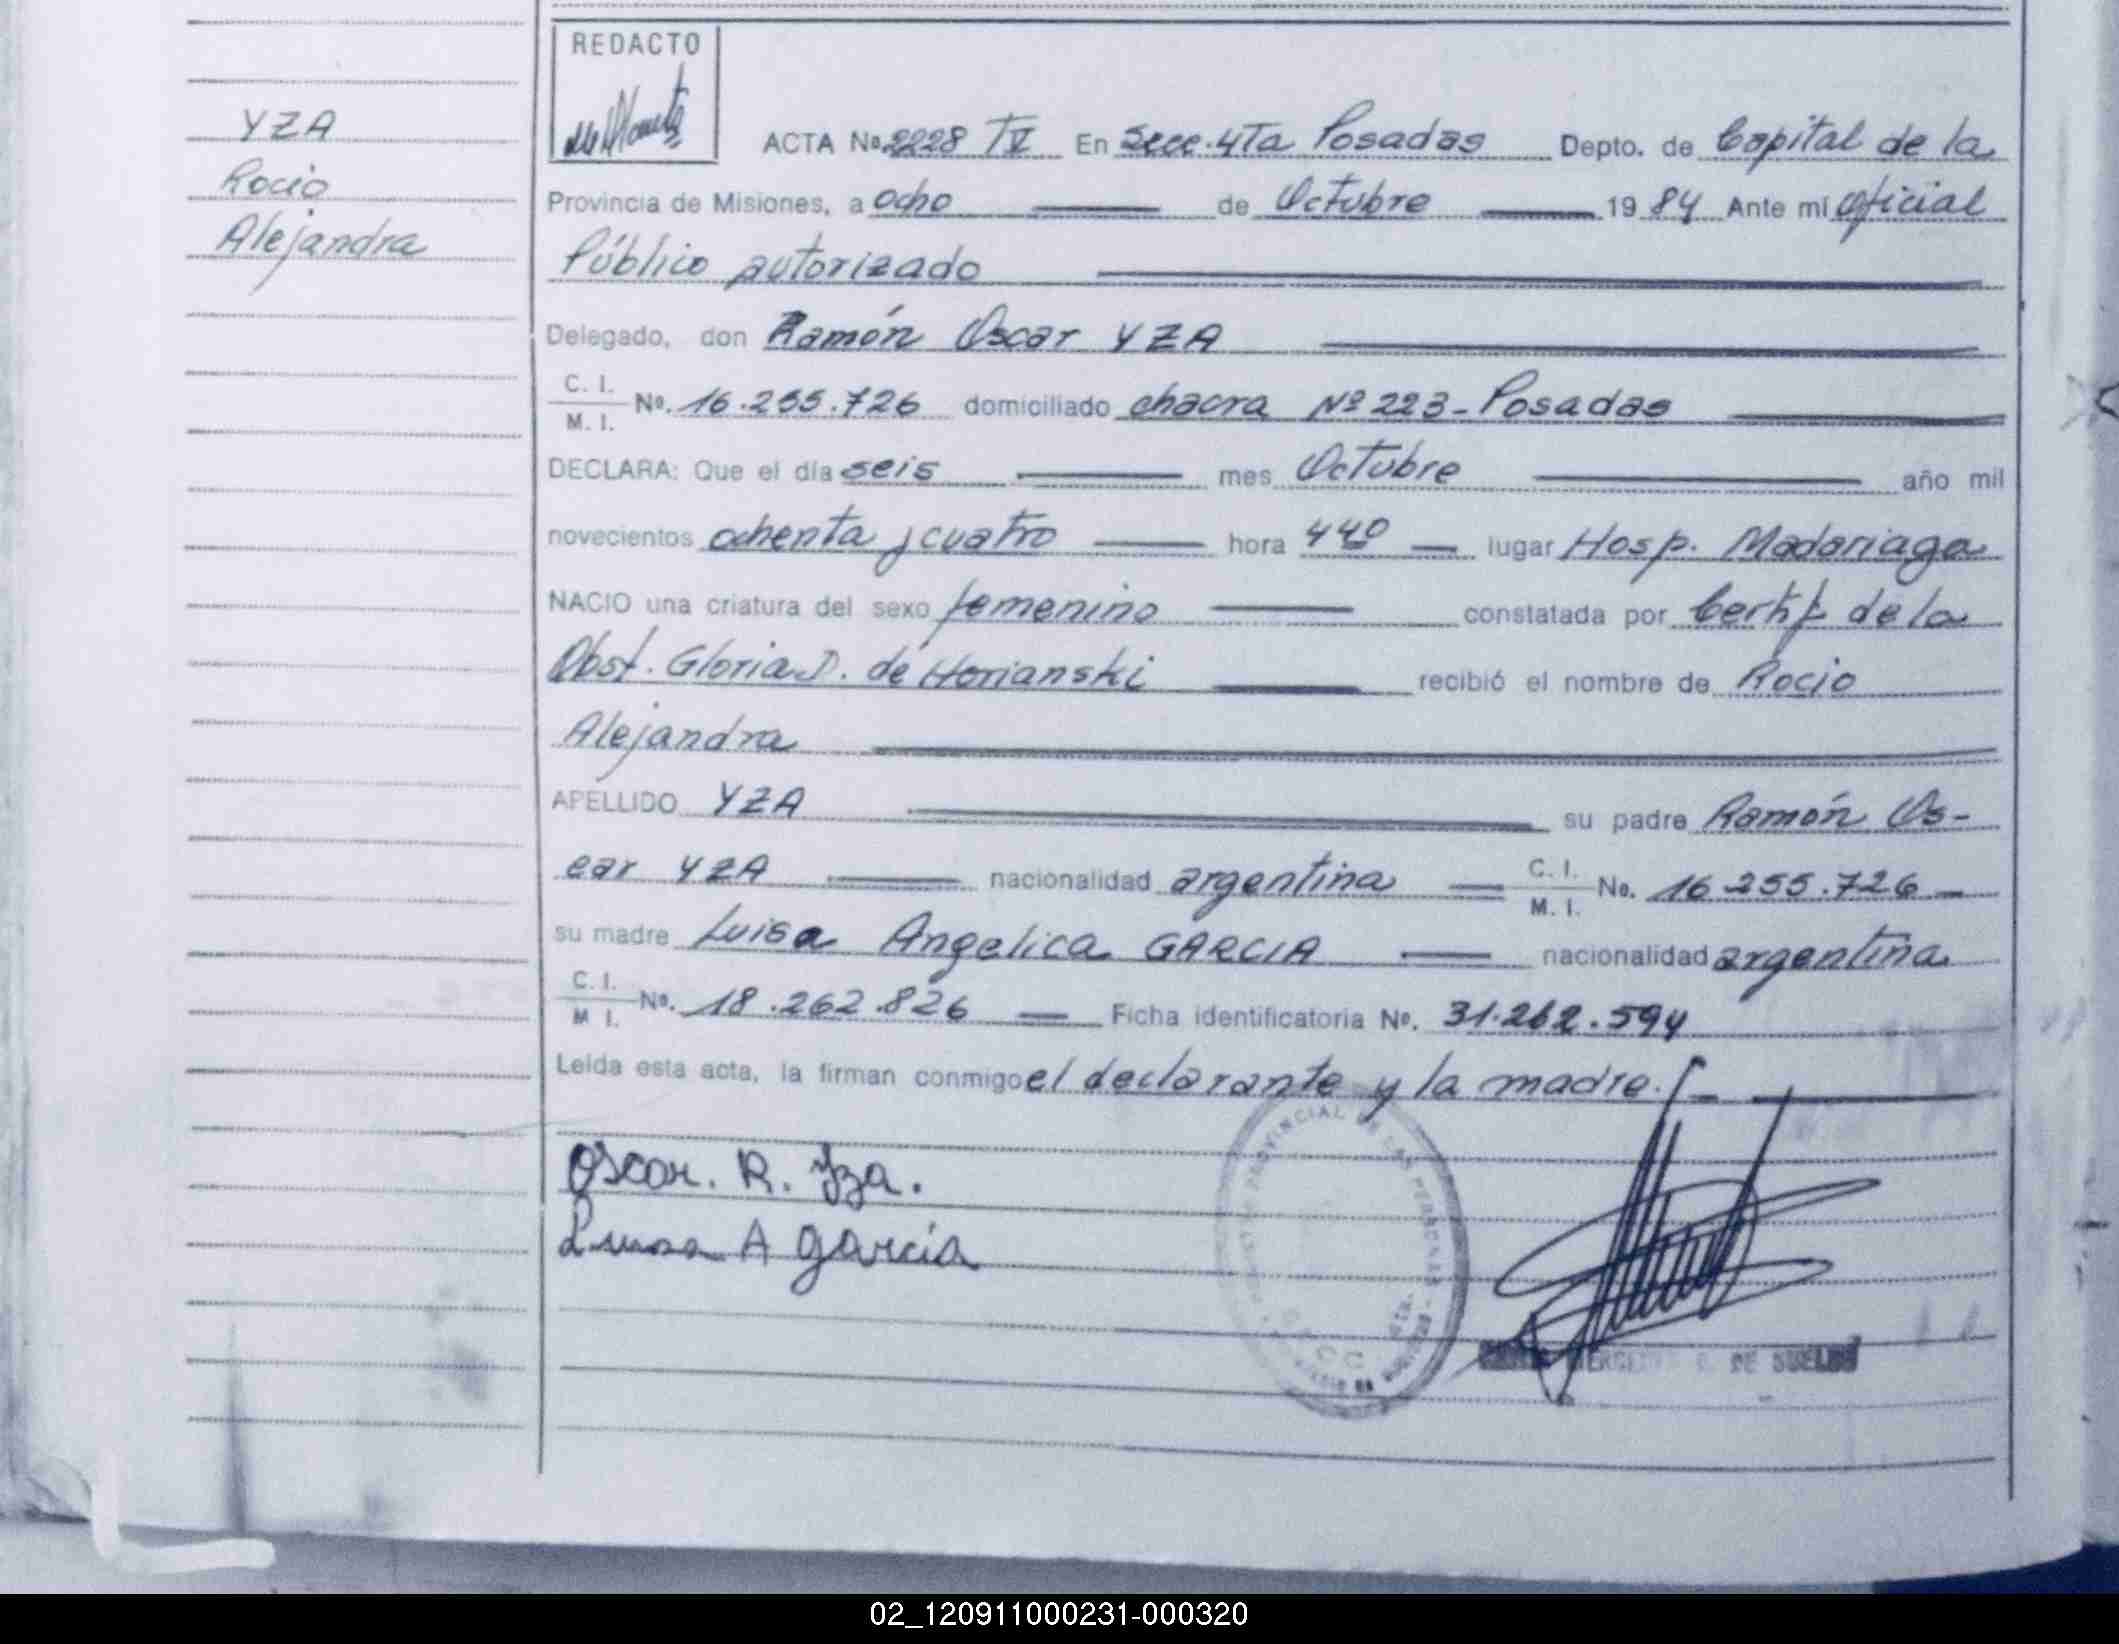 REDACTO
YZA
Rocio
Alejandra
ACTA No. 2228 TV En Secc. 4Ta Posadas Depto. de Capital de la
Provincia de Misiones, a ocho de Octubre 1984 Ante mí oficial
Público autorizado
Delegado, don Ramón Oscar YZA
C. I.
M. I. No. 16.255.726 domiciliado chacra Nº 223 - Posadas
DECLARA: Que el día seis mes Octubre año mil
novecientos ochenta y cuatro hora 440 lugar Hosp. Madariaga
NACIO una criatura del sexo femenino constatada por Certif de la
Obst. Gloria D. de Horianski recibió el nombre de Rocio
Alejandra
APELLIDO YZA su padre Ramón Os-
car YZA nacionalidad argentina C. I. M. I. No. 16.255.726
su madre Luisa Angelica GARCIA nacionalidad argentina
C. I.
M I. No. 18.262.826 Ficha identificatoria No. 31.262.594
Leída esta acta, la firman conmigo el declarante y la madre.
Oscar. R. Yza.
Luisa A García
DE SUELDO
02_120911000231-000320